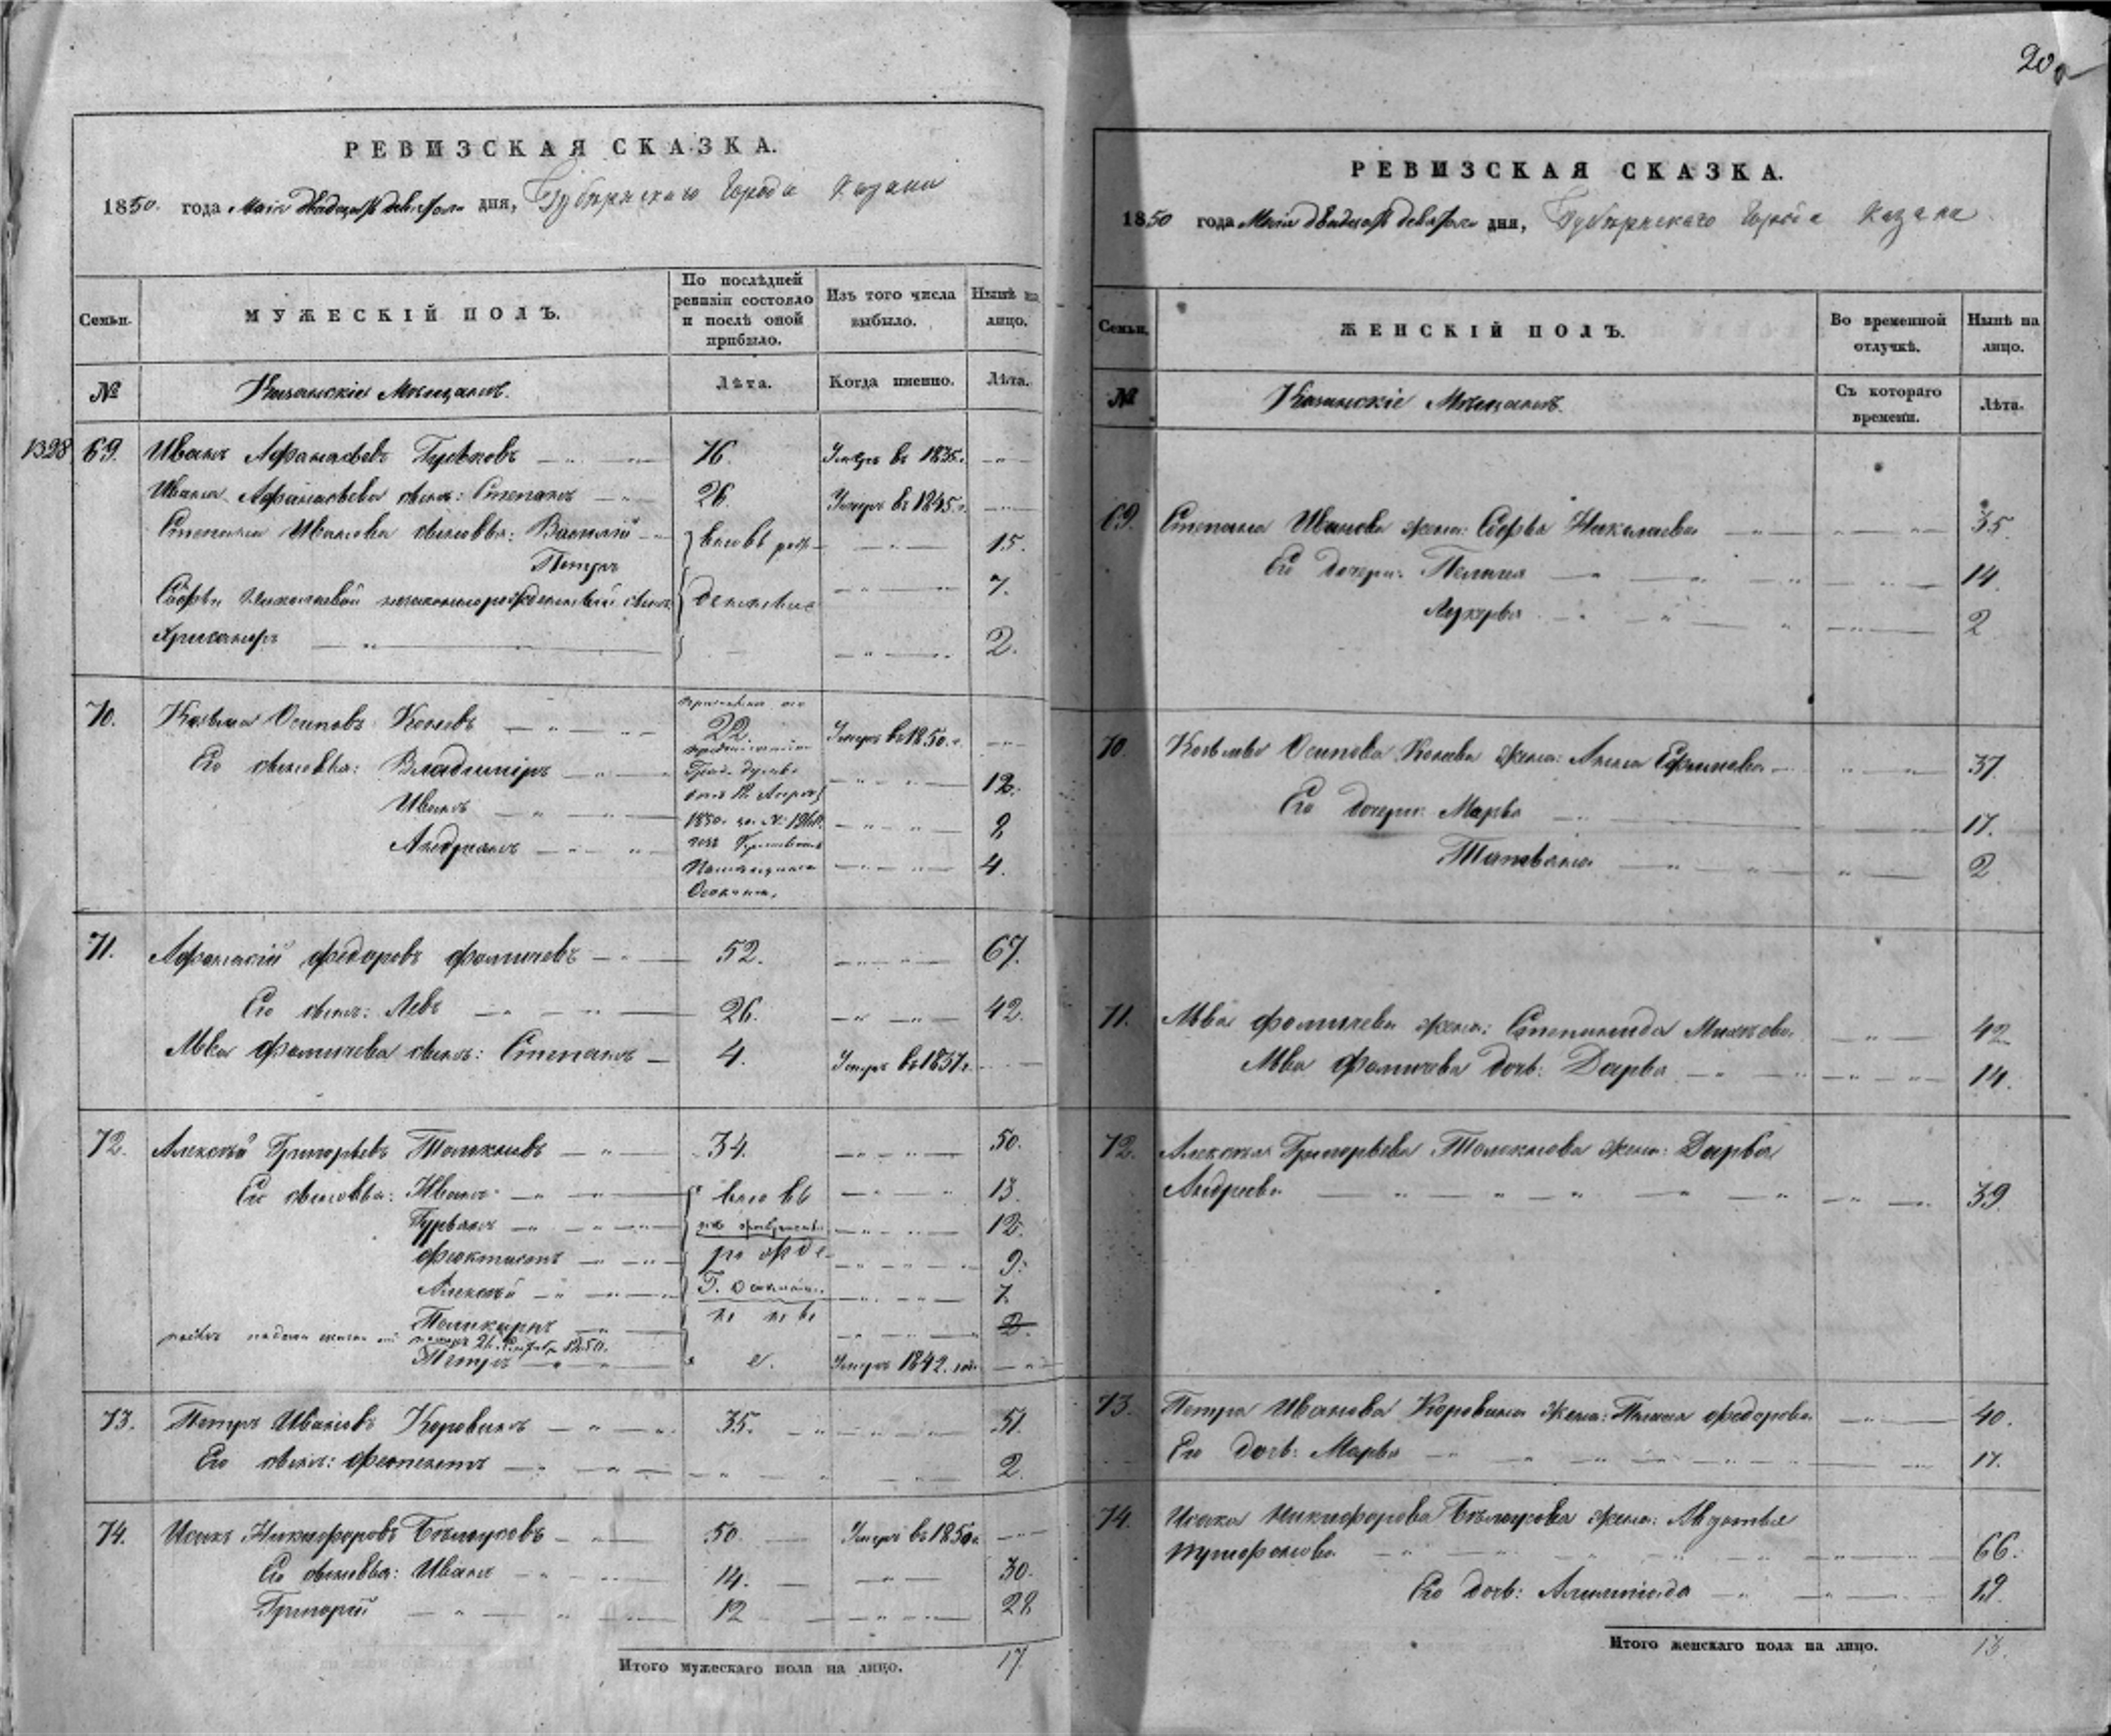 20
РЕВИЗСКАЯ СКАЗКА.
1850. года Маія двадцать девятаго дня, Губернскаго Города Казани
Семьи.
МУЖЕСКІЙ ПОЛЪ.
По послѣдней ревизіи состояло и послѣ оной прибыло.
Изъ того числа выбыло.
Нынѣ на лицо.
№
Казанскіе Мѣщане.
Лѣта.
Когда именно.
Лѣта.
1328 69. Иванъ Афанасьевъ 76. Умеръ въ 1835.
Ивана Афанасьева сынъ: Степанъ 26. Умеръ въ 1845.
Степана Иванова сыновья: Василій вновь рож 15.
Петръ 7.
Софьи Николаевой незаконнорожденный сынъ денные
2.
70. Козьма Осиповъ Коневъ 22 Умеръ въ 1850.
Его сыновья: Владиміръ 12.
Иванъ 8
1850. за №
Андреянъ 4.
71. Афанасій Федоровъ Фомичевъ 52. 67.
Его сынъ: Левъ 26. 42.
Льва Фомичева сынъ: Степанъ 4. Умеръ въ 1837.
72. Алексѣй Григорьевъ Толокновъ 34. 50.
Его сыновья: Иванъ вновь 13.
Гурьянъ 12.
Феоктистъ рожде 9.
Алексѣй 7.
Поликарпъ 2.
Петръ е. Умеръ 1842.
73. Петръ Ивановъ Коровинъ 35. 51.
Его сынъ: Феопентъ 2.
74. Исакъ Никифоровъ Бѣлоусовъ 50. Умеръ въ 1850.
Его сыновья: Иванъ 14. 30.
Григорій 12 28
Итого мужескаго пола на лицо. 17
РЕВИЗСКАЯ СКАЗКА.
1850 года Маія двадцать девятаго дня, Губернскаго Города Казани
Семьи.
ЖЕНСКІЙ ПОЛЪ.
Во временной отлучкѣ.
Нынѣ на лицо.
№
Казанскіе Мѣщане.
Съ котораго времени.
Лѣта.
69. Степана Иванова жена: Софья Николаева 35.
Его дочери: Пелагея 14.
Лукерья 2
70. Козьмы Осипова Конева жена: Анна Ефимова 37.
Его дочери: Марья 17.
Татьяна 2
71. Льва Фомичева жена: Степанида Михѣева 42
Льва Фомичева дочь: Дарья 14.
72. Алексѣя Григорьева Толокнова жена: Дарья
Андреева 39.
73. Петра Иванова Коровина жена: Федорова 40.
Его дочь: Марья 17.
74. Исака Никифорова Бѣлоусова жена: Авдотья
Труфонова 66.
Его дочь: Алимпіода 19.
Итого женскаго пола на лицо. 13.